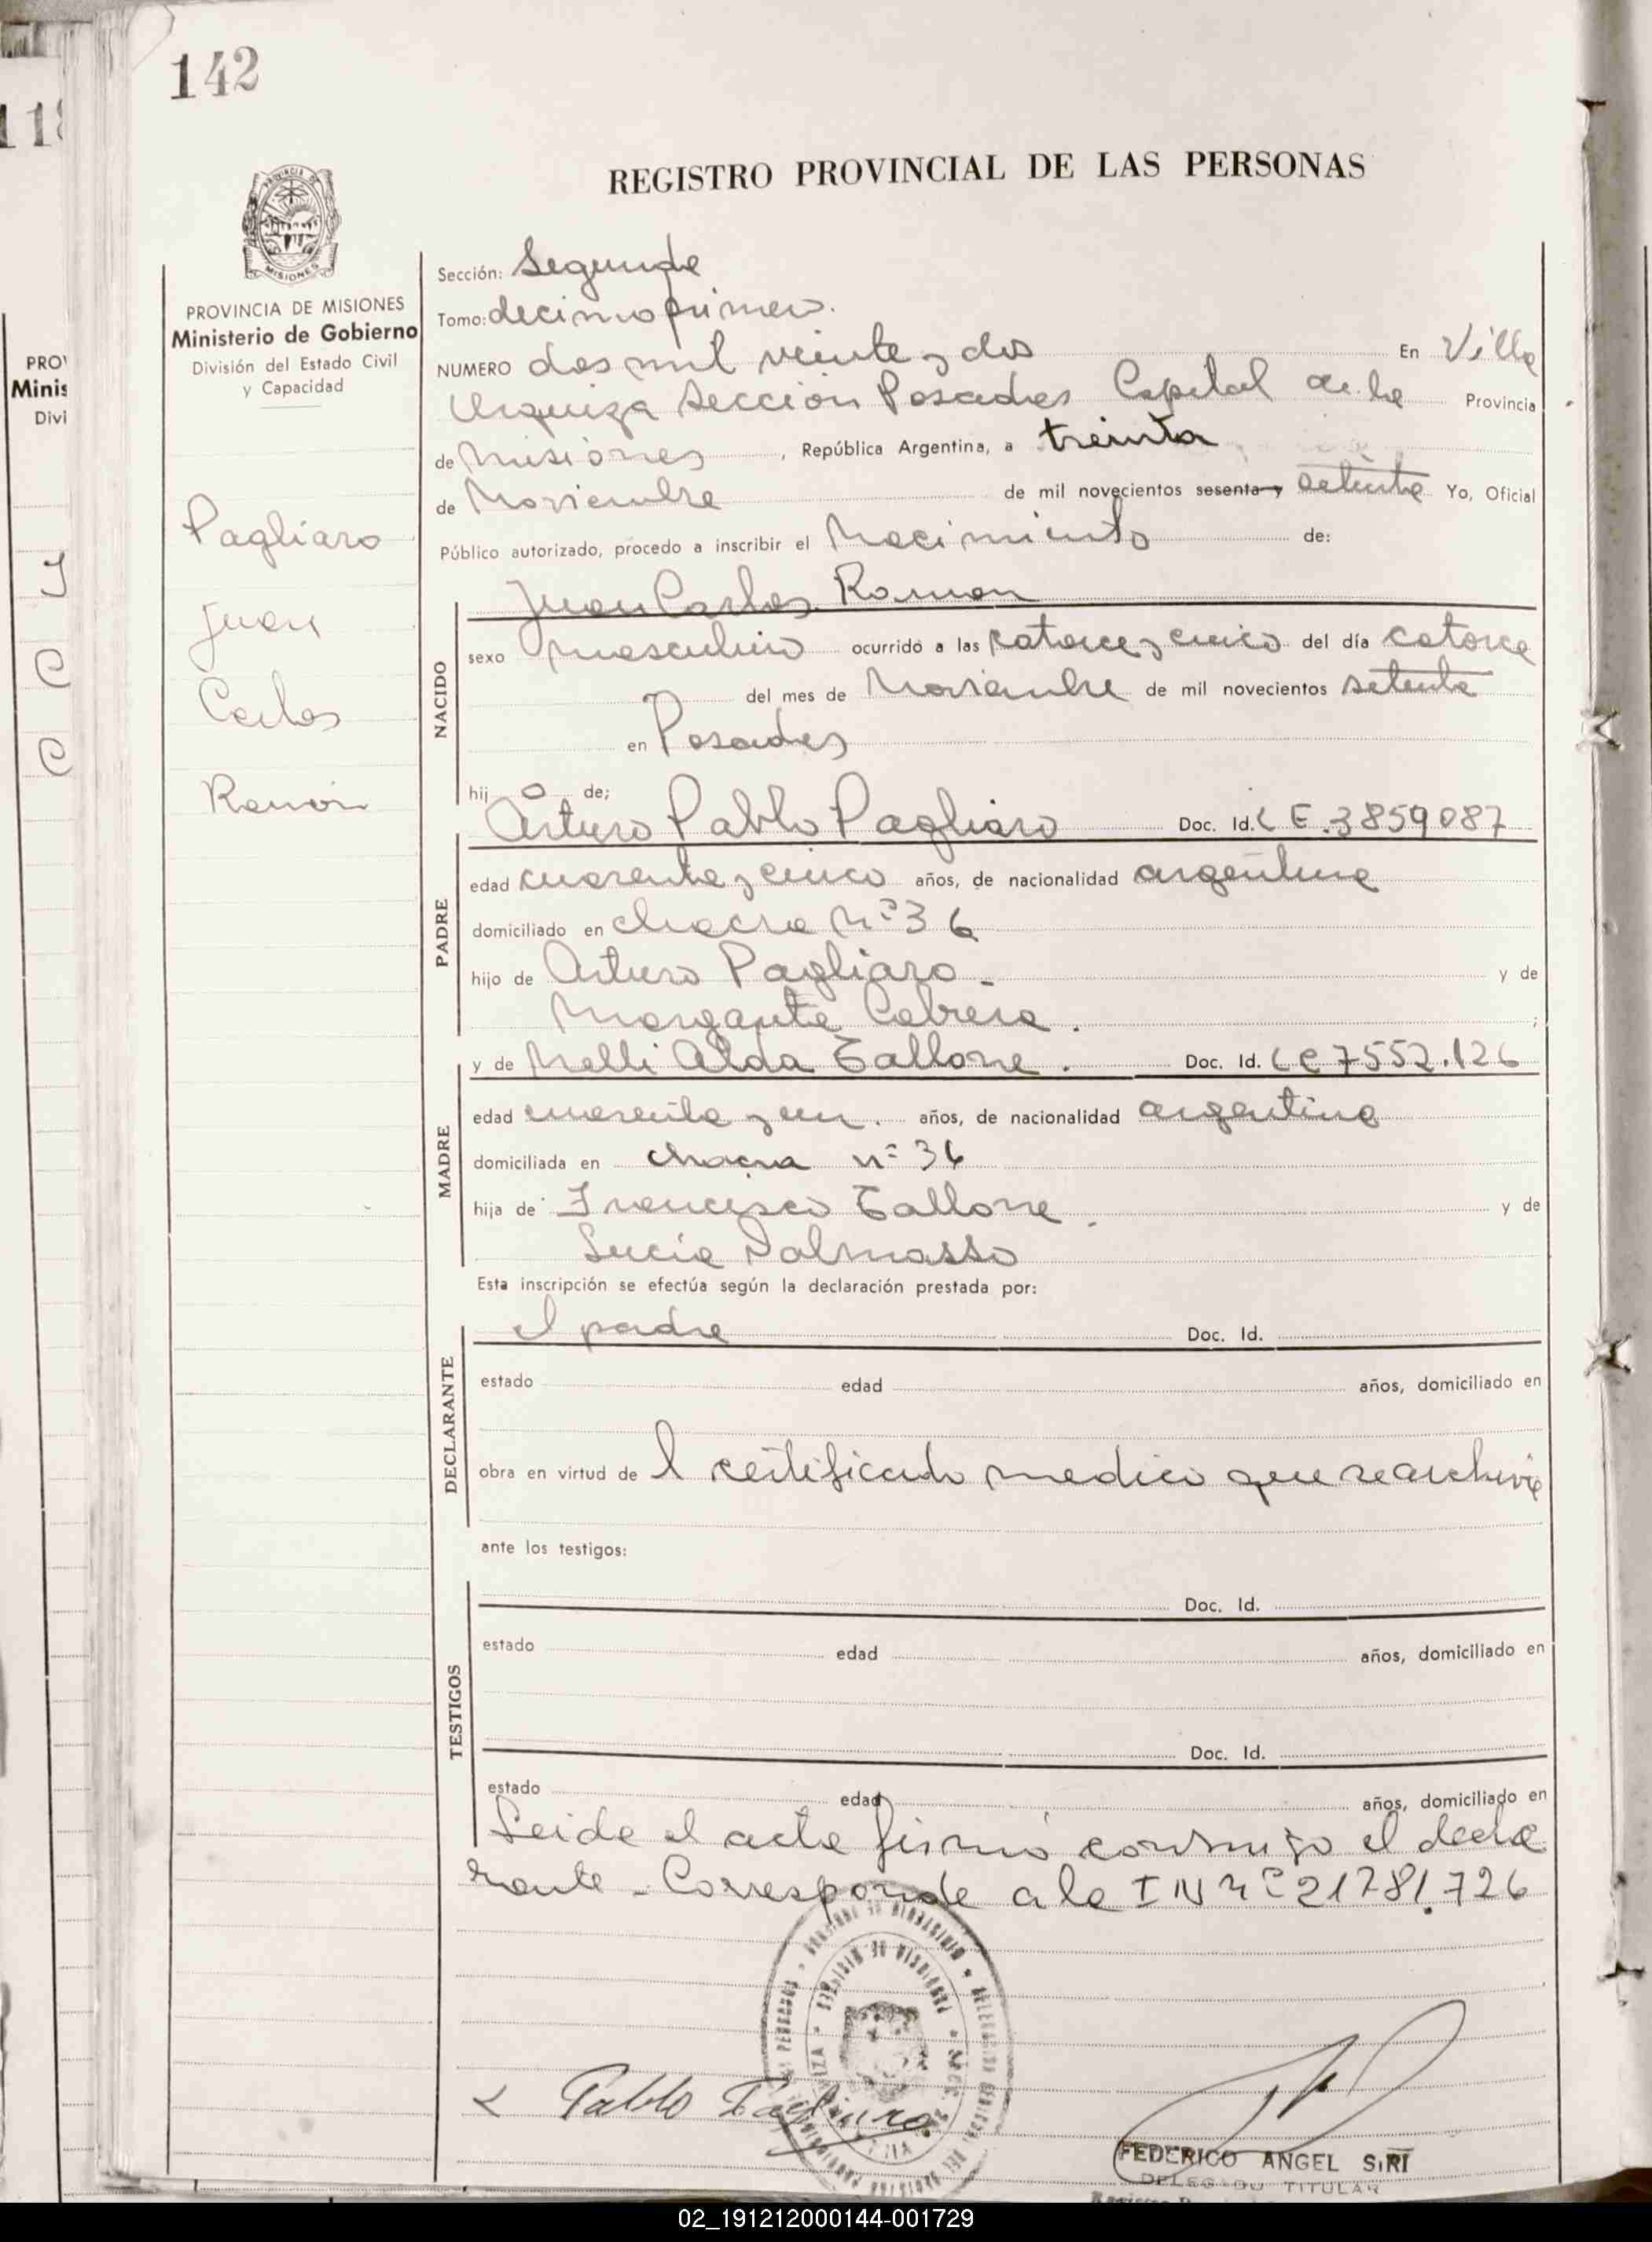 142
118
REGISTRO PROVINCIAL DE LAS PERSONAS
PROVINCIA DE MISIONES
Ministerio de Gobierno
División del Estado Civil
y Capacidad
Pagliaro
Juan
Carlos
Ramón
Sección: Segunda
Tomo: decimo primero.
NUMERO dos mil veinte y dos En Villa
Urquiza Sección Posadas Capital de la Provincia
de Misiones, República Argentina, a treinta
de Noviembre de mil novecientos sesenta y setenta Yo, Oficial
Público autorizado, procedo a inscribir el Nacimiento de:
Juan Carlos Ramon
NACIDO
sexo masculino ocurrido a las catorce y cinco del día catorce
del mes de Noviembre de mil novecientos setenta
en Posadas
hij o de;
Arturo Pablo Pagliaro Doc. Id. L E. 3859087
PADRE
edad cuarenta y cinco años, de nacionalidad argentina
domiciliado en chacra Nº 36
hijo de Arturo Pagliaro - y de
Margarita Cabrera . ;
y de Nelli Alda Tallone . Doc. Id. LC 7552.126
MADRE
edad cuarenta y un . años, de nacionalidad argentina
domiciliada en chacra nº 36
hija de Francisco Tallone . y de
Lucia Dalmasso
Esta inscripción se efectúa según la declaración prestada por:
el padre Doc. Id.
DECLARANTE
estado edad años, domiciliado en
obra en virtud de l certificado medico que se archiva
ante los testigos:
Doc. Id.
TESTIGOS
estado edad años, domiciliado en
Doc. Id.
estado edad años, domiciliado en
Leida el acta firmó conmigo el decla
rante - Corresponde a la I N nº 21781.726
Pablo Pagliaro
FEDERICO ANGEL SIRI
DELEGADO TITULAR
02_191212000144-001729